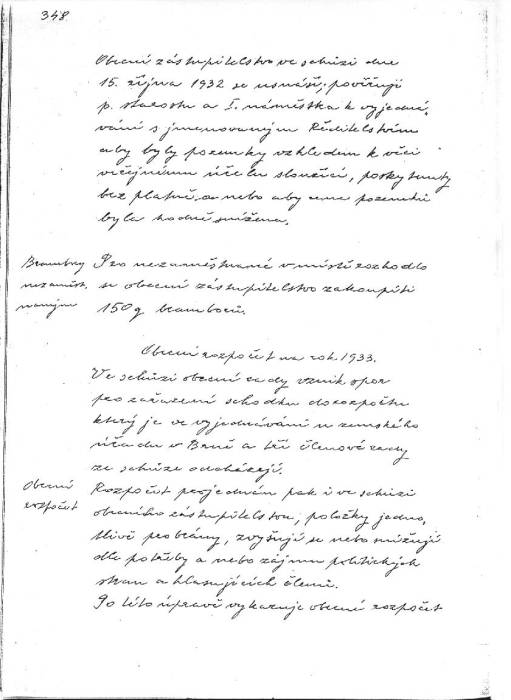 348
Obecní zástupitelstvo ve schůzi dne
15. října 1932 se usnáší, pověřují
p. starostu a I. náměstka k vyjedná,
vání s jmenovaným Ředitelstvím
aby byly pozemky vzhledem k věci
veřejnému účelu sloužící, poskytnuty
bezplatně, a nebo aby cena pozemků
byla hodně snížena.
Brambory
nezaměst.
naným
Pro nezaměstnané v místě rozhodlo
se obecní zástupitelstvo zakoupiti
150 q brambor.
Obecní rozpočet na rok 1933.
Ve schůzi obecní rady vznik spor
pro zařazení schodku do rozpočtu
který je ve vyjednávání u zemského
úřadu v Brně a tři členové rady
ze schůze odcházejí.
Obecní
rozpočet
Rozpočet projednán pak i ve schůzi
obecního zástupitelstva, položky jedno,
tlivě probrány, zvyšují se nebo snižují
dle potřeby a nebo zájmu politických
stran a hlasujících členů.
Po této úpravě vykazuje obecní rozpočet